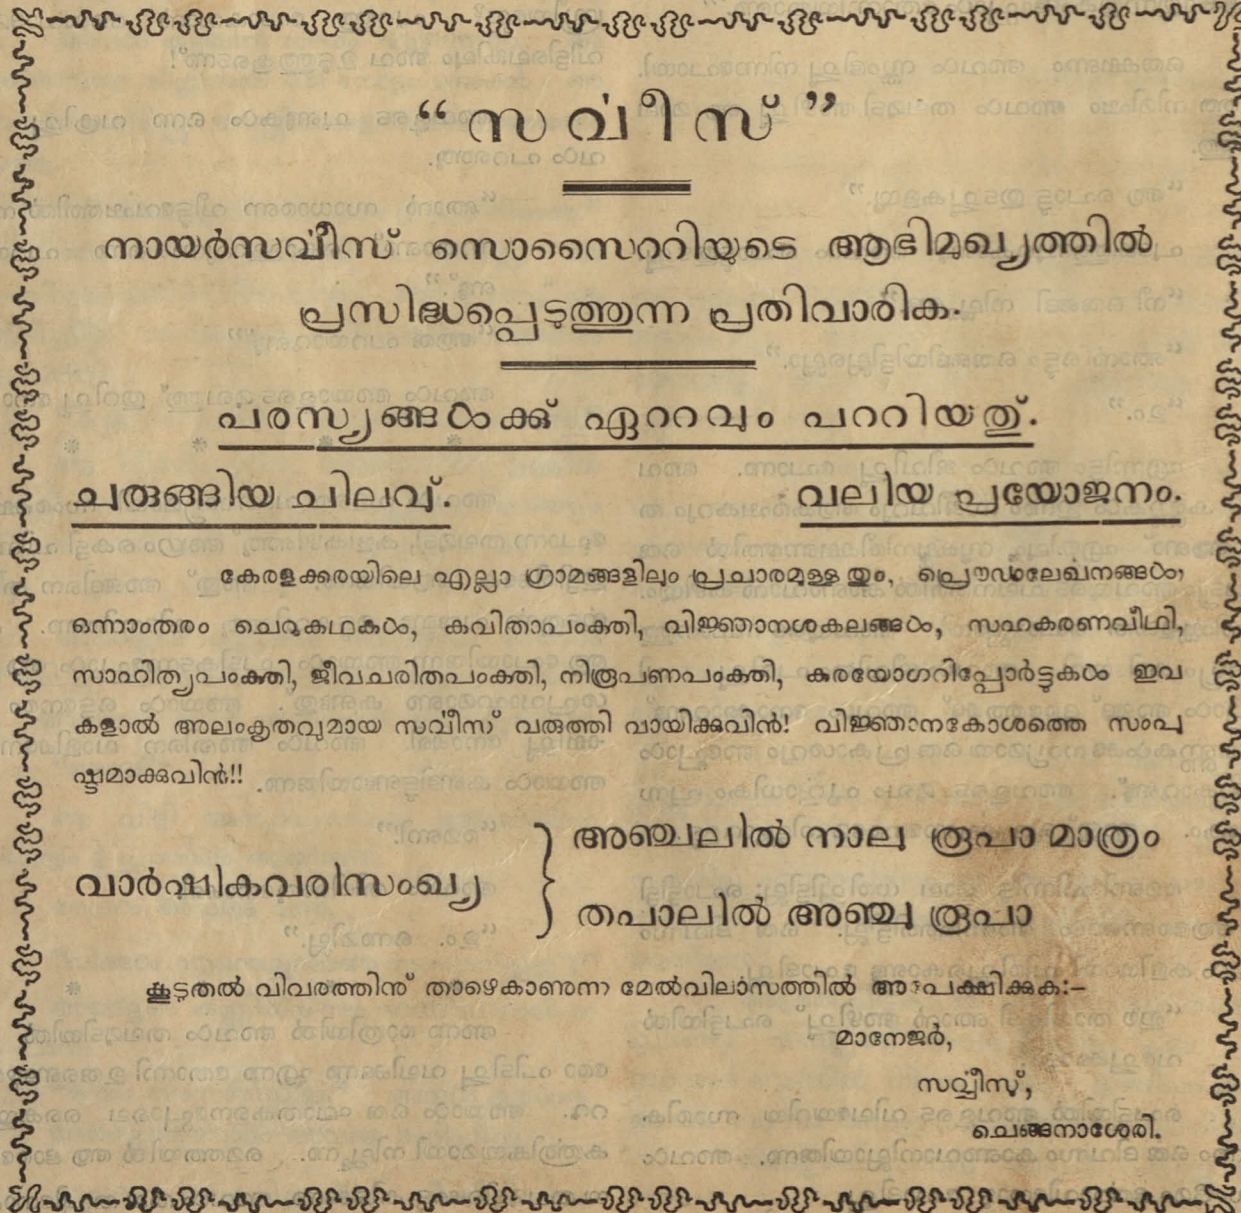 “സൎവീസ്”
നായർസൎവീസ് സൊസൈററിയുടെ ആഭിമുഖ്യത്തിൽ
പ്രസിദ്ധപ്പെടുത്തുന്ന പ്രതിവാരിക.
പരസ്യങ്ങൾക്കു് ഏററവും പററിയതു്.
ചുരുങ്ങിയ ചിലവു്. വലിയ പ്രയോജനം.
കേരളക്കരയിലെ എല്ലാ ഗ്രാമങ്ങളിലും പ്രചാരമുള്ളതും, പ്രൌഢലേഖനങ്ങൾ,
ഒന്നാംതരം ചെറുകഥകൾ, കവിതാപംക്തി, വിജ്ഞാനശകലങ്ങൾ, സഹകരണവീഥി,
സാഹിത്യപംക്തി, ജീവചരിതപംക്തി, നിരൂപണപംക്തി, കരയോഗറിപ്പോർട്ടുകൾ ഇവ
കളാൽ അലംകൃതവുമായ സൎവീസ് വരുത്തി വായിക്കുവിൻ! വിജ്ഞാനകോശത്തെ സംപു
ഷ്ടമാക്കുവിൻ!!
വാർഷികവരിസംഖ്യ } അഞ്ചലിൽ നാലു രൂപാ മാത്രം
തപാലിൽ അഞ്ചു രൂപാ
കൂടുതൽ വിവരത്തിനു് താഴെകാണുന്ന മേൽവിലാസത്തിൽ അപേക്ഷിക്കുക:—
മാനേജർ,
സൎവ്വീസു്,
ചെങ്ങനാശേരി.